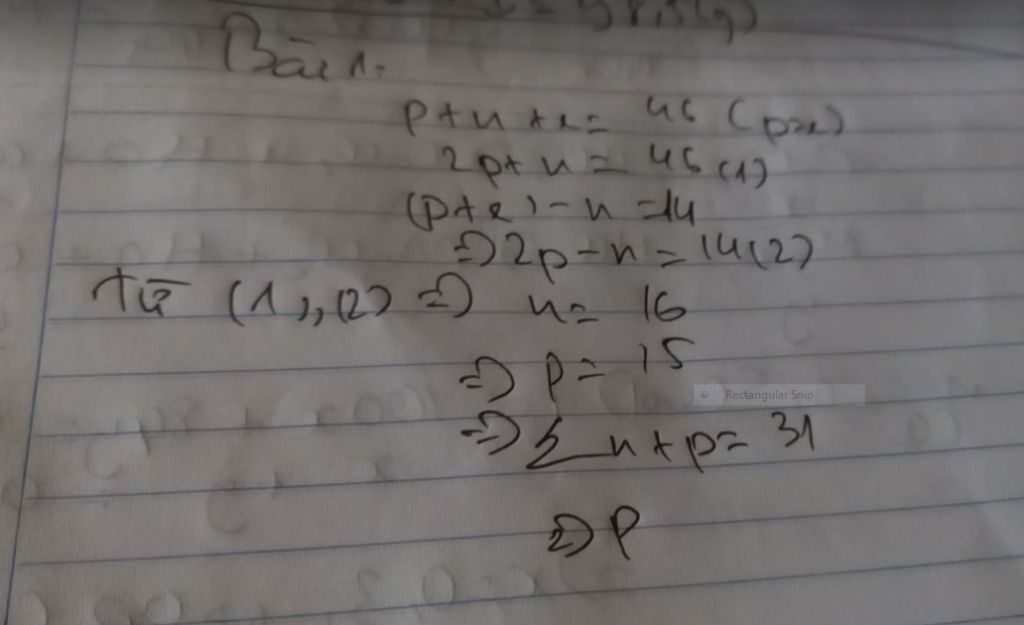 Bài 1.
p+n+e= 46 (p=e)
2p+n= 46 (1)
(p+e)-n=14
=> 2p-n=14(2)
Từ (1),(2) => n= 16
=> p= 15
Rectangular Snip
=> Σ n+p= 31
=> P